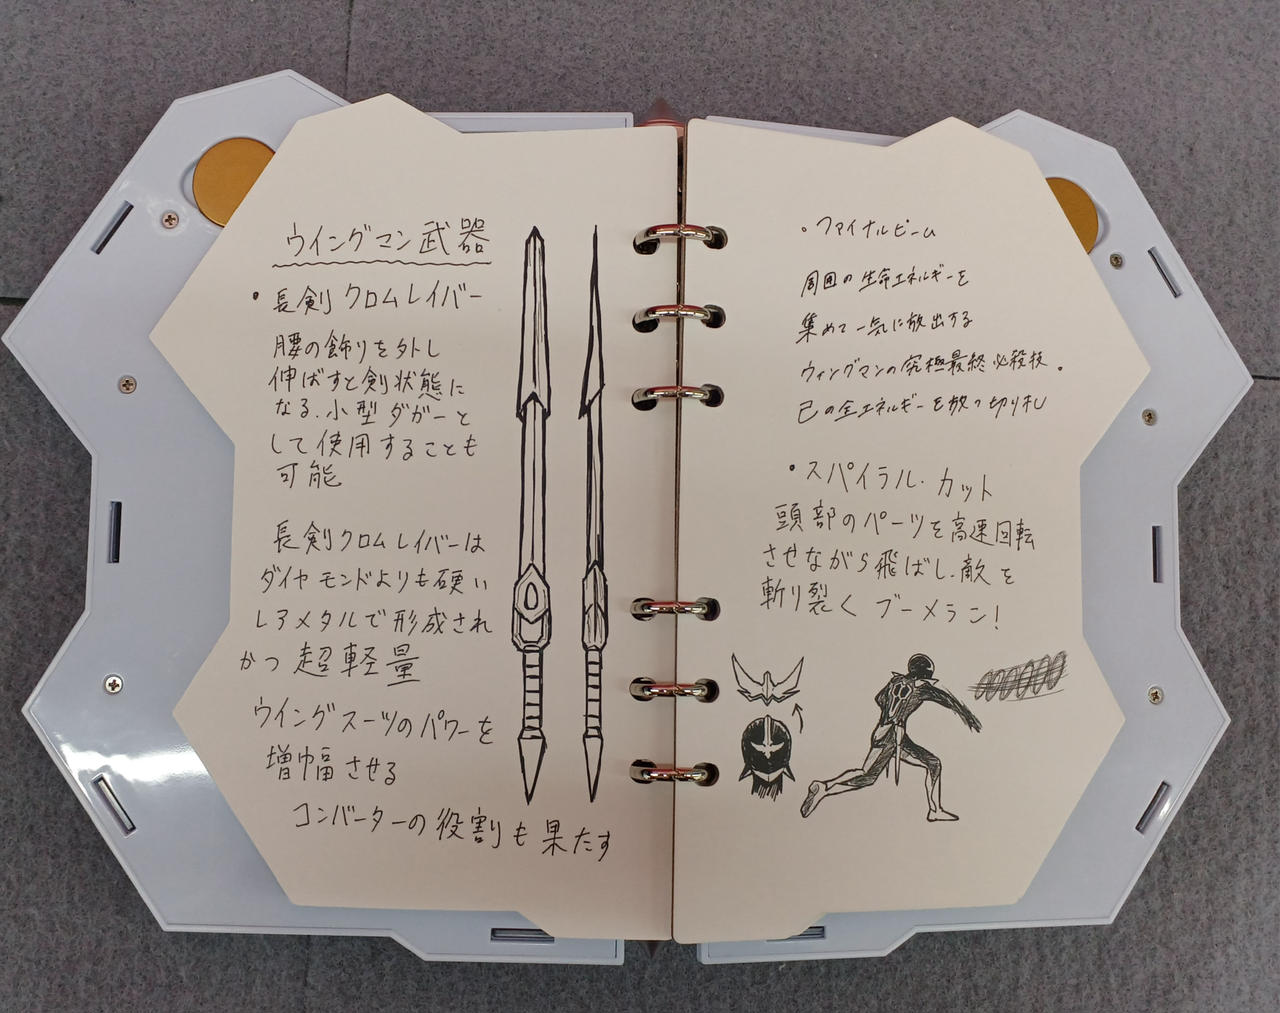 ウイングマン武器
・長剣 クロムレイバー
腰の飾りを外し
伸ばすと剣状態に
なる、小型ダガーと
して使用することも
可能
長剣クロムレイバーは
ダイヤモンドよりも硬い
レアメタルで形成され
かつ 超軽量
ウイングスーツのパワーを
増幅させる
コンバーターの役割も果たす
・ファイナルビーム
周囲の生命エネルギーを
集めて一気に放出する
ウィングマンの究極最終必殺技。
己の全エネルギーを放つ切り札
・スパイラル・カット
頭部のパーツを高速回転
させながら飛ばし、敵を
斬り裂く ブーメラン!